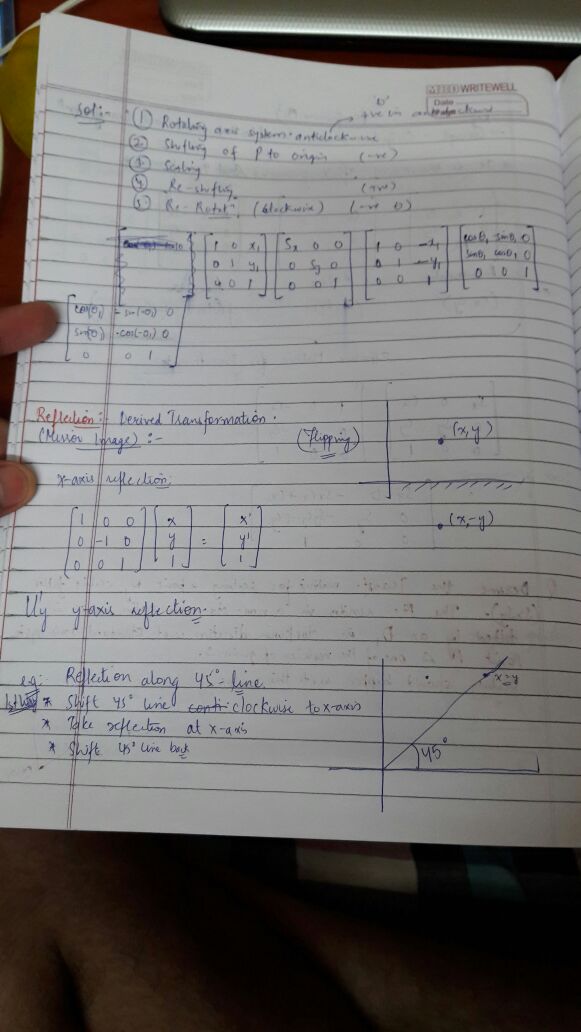 WRITEWELL
Date
Sol:-
① Rotating axis system anticlockwise → 'θ' +ve in anticlockwise
② Shifting of P to origin (-ve)
③ Scaling
④ Re-shifting (+ve)
⑤ Re-Rotatⁿ (clockwise) (-ve θ)
[1 0 x₁] [Sx 0 0] [1 0 -x₁] [cosθ₁ sinθ₁ 0]
[0 1 y₁] [0 Sy 0] [0 1 -y₁] [sinθ₁ cosθ₁ 0]
[0 0 1] [0 0 1] [0 0 1] [0 0 1]
[cos(θ₁) -sin(-θ₁) 0]
[sin(θ₁) -cos(-θ₁) 0]
[0 0 1]
Reflection:- Derived Transformation.
(Mirror Image) :- (Flipping) (x,y)
x-axis reflection:
[1 0 0] [x] [x']
[0 -1 0] [y] = [y'] (x,-y)
[0 0 1] [1] [1]
lly y-axis reflection.
e.g:- Reflection along 45° line. x=y
* Shift 45° line clockwise to x-axis
* Take reflection at x-axis
* Shift 45° line back 45°